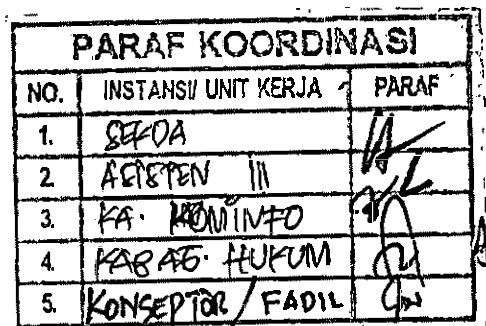 PARAF KOORDINASI
NO. INSTANSI/ UNIT KERJA PARAF
1. SEKDA
2. ASISTEN III
3. KA. KOMINFO
4. KABAG. HUKUM
5. KONSEPTOR / FADIL